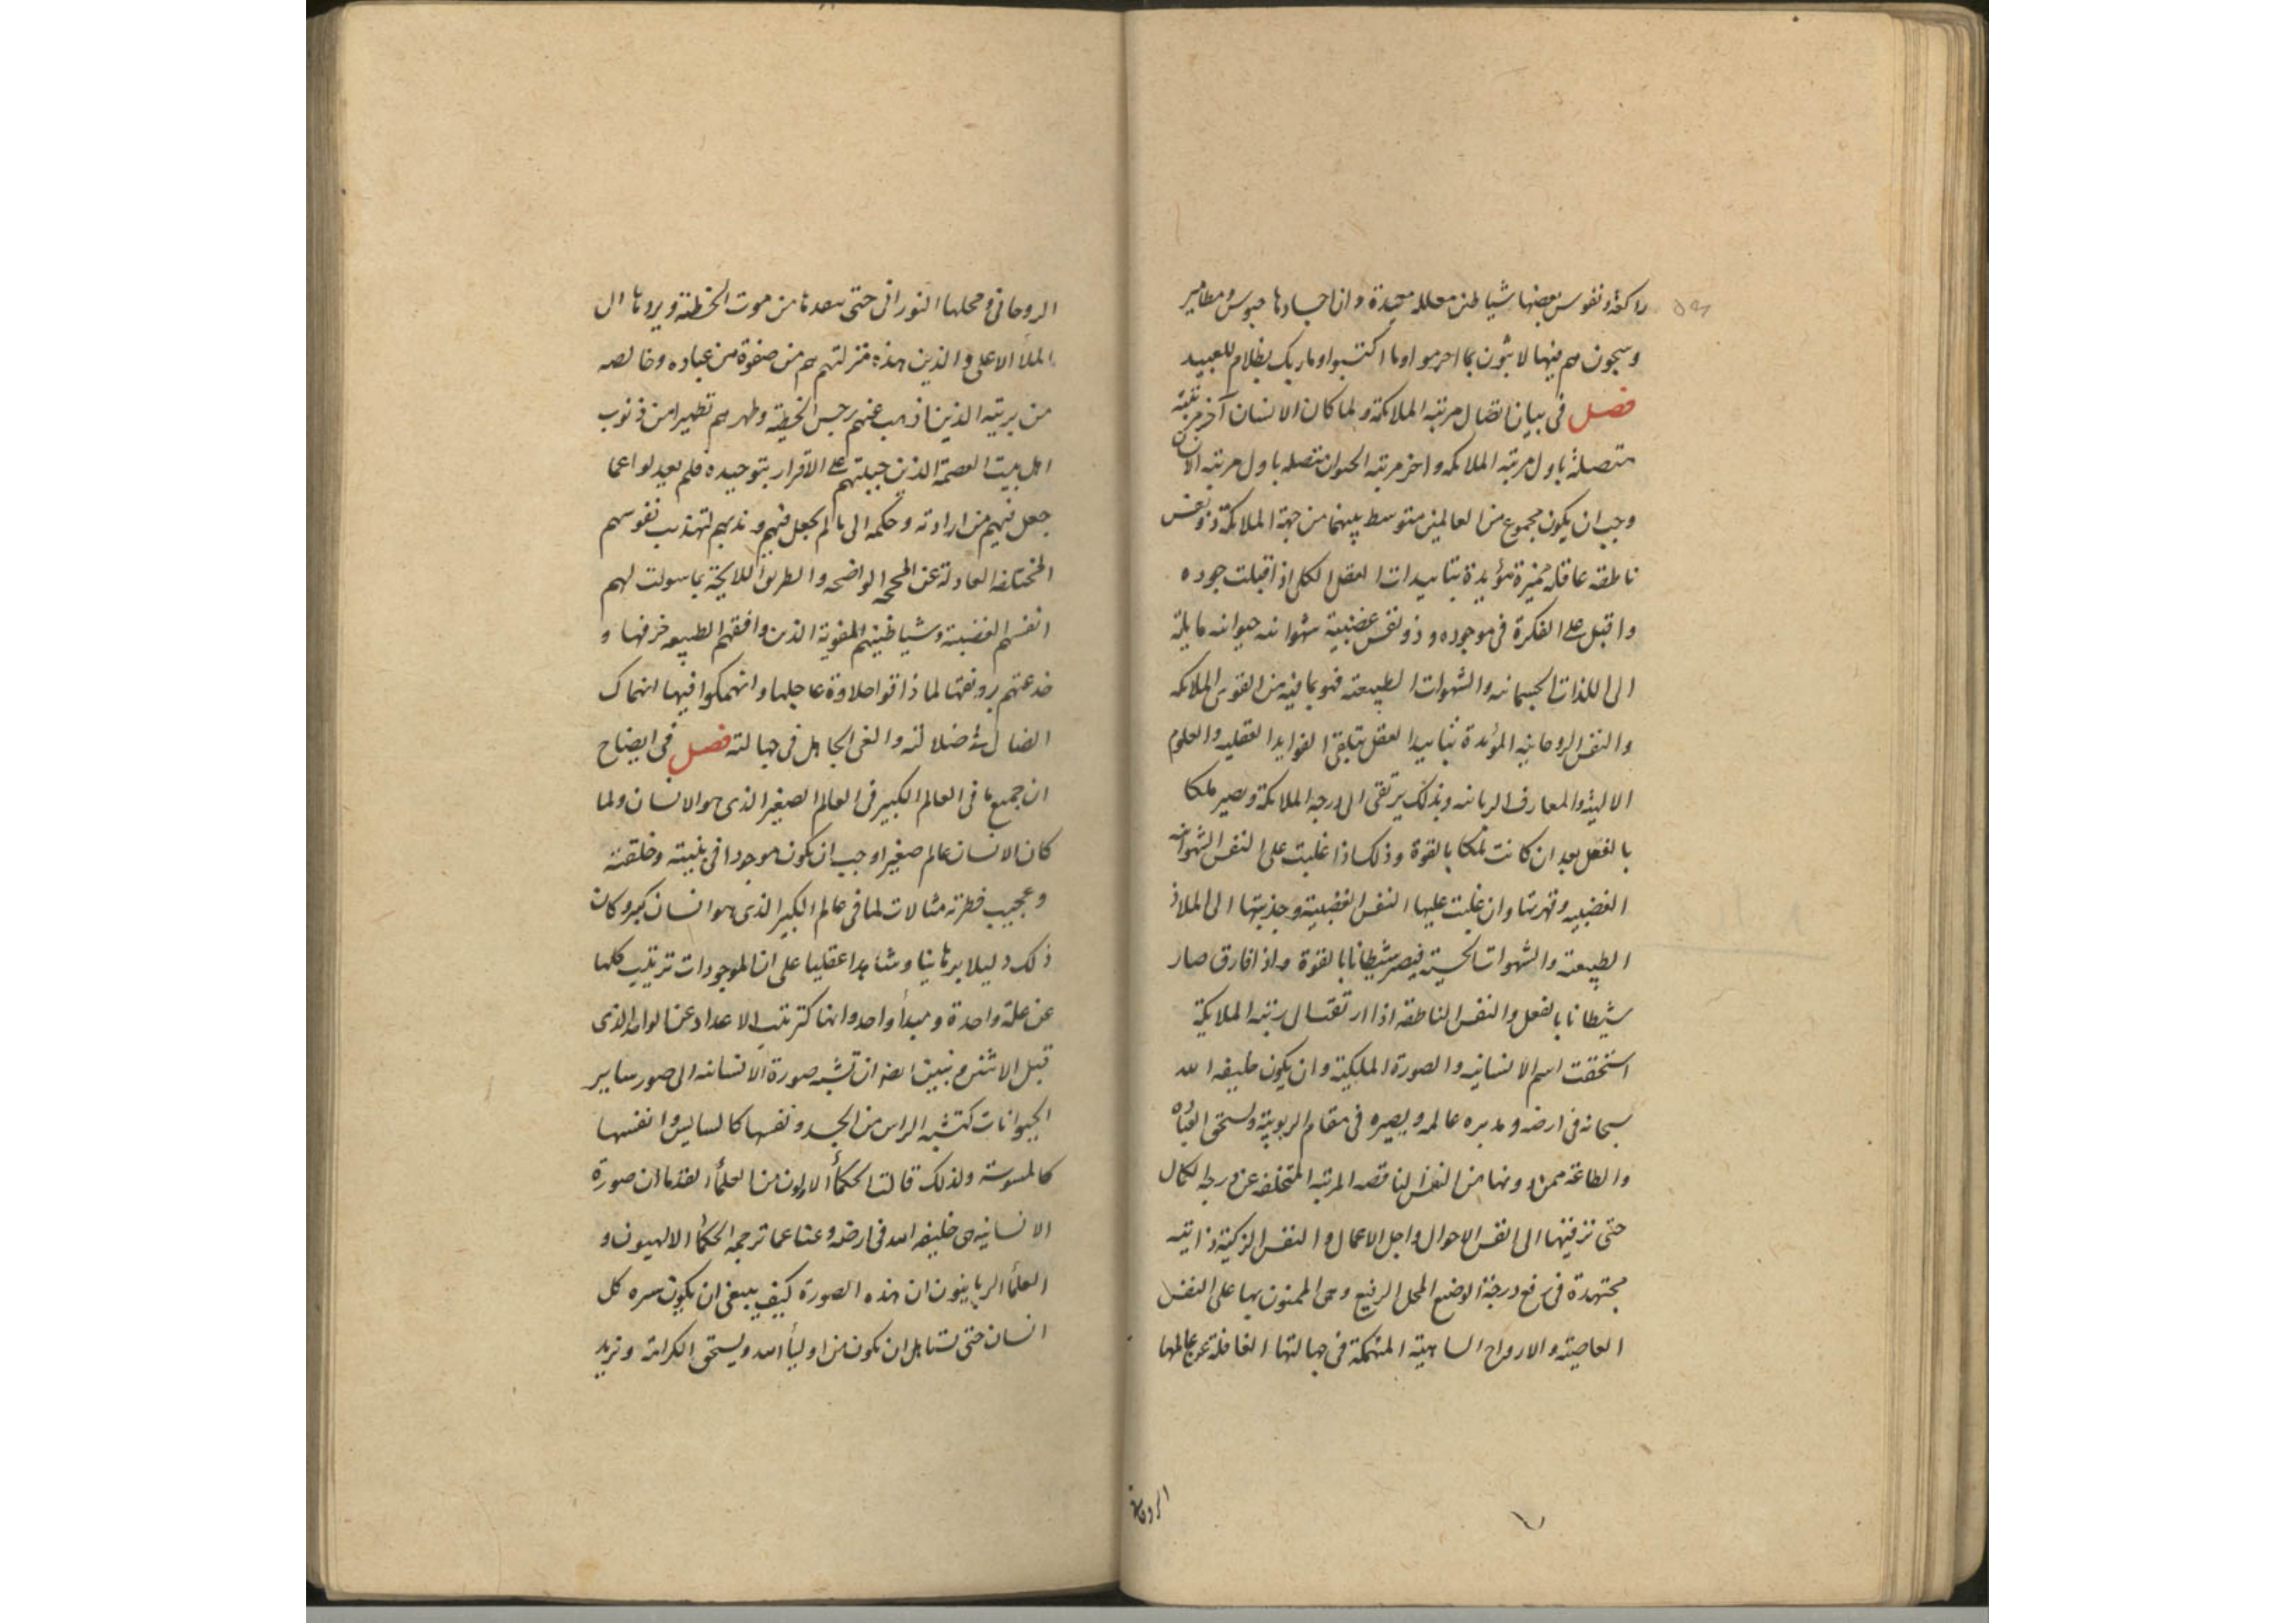 راكعة ونفوس بعضها شياطين مغللة مقيدة وان اجسادها حبوس ومطامير
وسجون هم فيها لابثون بما اجرموا وما اكتسبوا وما ربك بظلام للعبيد
فصل فى بيان اتصال مرتبه الملائكة ولما كان الانسان آخر مرتبته
متصلة باول مرتبه الملائكه واخر مرتبه الحيوان متصله باول مرتبه الانسان
وجب ان يكون مجموع من العالمين متوسط بينهما من جهة الملائكة ذو نفس
ناطقه عاقله مميزة مؤيدة بتاييدات العقل الكلى اذا قبلت جوده
واقبل على الفكرة فى موجوده وذو نفس غضبية شهوانيه حيوانيه مايلة
الى اللذات الجسمانيه والشهوات الطبيعته فهو بما فيه من القوى الملائكه
والنفس الروحانيه المؤيدة بتاييد العقل يتلقى الفوايد العقليه والعلوم
الالهية والمعارف الربانيه وبذلك يرتقى الى درجه الملائكة ويصير ملكا
بالفعل بعد ان كانت ملكا بالقوة وذلك اذا غلبت على النفس الشهوانيه
الغضبيه وقهرتها وان غلبت عليها النفس الغضبية وجذبتها الى الملاذ
الطبيعته والشهوات الحسية فيصير شيطانا بالقوة واذا فارق صار
شيطانا بالفعل والنفس الناطقه اذا ارتقت الى رتبه الملايكة
استحقت اسم الانسانيه والصورة الملكية وان يكون خليفه الله
سبحانه فى ارضه ومدبره عالمه ويصيره فى مقام الربوبية ويستحق العباده
والطاعة ممن دونها من النفس الناقصه المرتبه المتخلفه عن درجه الكمال
حتى ترقيها الى انفس الاحوال واجل الاعمال والنفس الزكية ذاتيه
مجتهدة فى رفع درجة الوضيع المحل الرفيع وهى الممنون بها على النفس
العاصية والارواح الساهية المنهمكة فى جهالتها الغافلة عن عالمها
الروحانى
الروحانى ومحلها النورانى حتى يبعدها من موت الخطيئة ويردها الى
الملأ الاعلى والذين هذه منزلتهم هم من صفوة من عباده وخالصه
من بريته الذين اذهب عنهم رجس الخطية وطهرهم تطهيرا من ذنوب
اهل بيت العصمة الذين جبلتهم على الاقرار بتوحيده فلم يعدلوا عما
جعل فيهم من ارادته وحكمه الى ما لم يجعل فيهم وندبهم لتهذيب نفوسهم
المختلفه العادلة عن المحجه الواضحه والطريق اللايحة بما سولت لهم
انفسهم الغضبية وشياطينهم المغوية الذين وافقهم الطبيعه خرفها و
خدعتهم برونقها لما ذاقوا حلاوة عاجلها وانهمكوا فيها انهماك
الضال فى ضلالته والغى الجاهل فى جهالته فصل فى ايضاح
ان جميع ما فى العالم الكبير فى العالم الصغير الذى هو الانسان ولما
كان الانسان عالم صغيرا وجب ان يكون موجودا فى بنيته وخلقته
وعجيب فطرته مثالات لما فى عالم الكبير الذى هو انسان كبير وكان
ذلك دليلا برهانيا وشاهدا عقليا على ان الموجودات ترتيب كلها
عن علة واحدة ومبدأ واحد وانها كترتيب الاعداد عن الواحد الذى
قبل الاثنين ونبين ايضا ان تشبه صورة الانسانيه الى صور ساير
الحيوانات كتشبه الراس من الجسد ونفسها كالسايس وانفسها
كالمسوسة ولذلك قالت الحكمأ الاولون من العلمأ القدما ان صورة
الانسانيه هى خليفه الله فى ارضه وعنا عما ترجمه الحكمأ الالهيون و
العلمأ الربانيون ان هذه الصورة كيف ينبغى ان يكون سره كل
انسان حتى يستاهل ان يكون من اوليأ الله ويستحق الكرامة ونريد